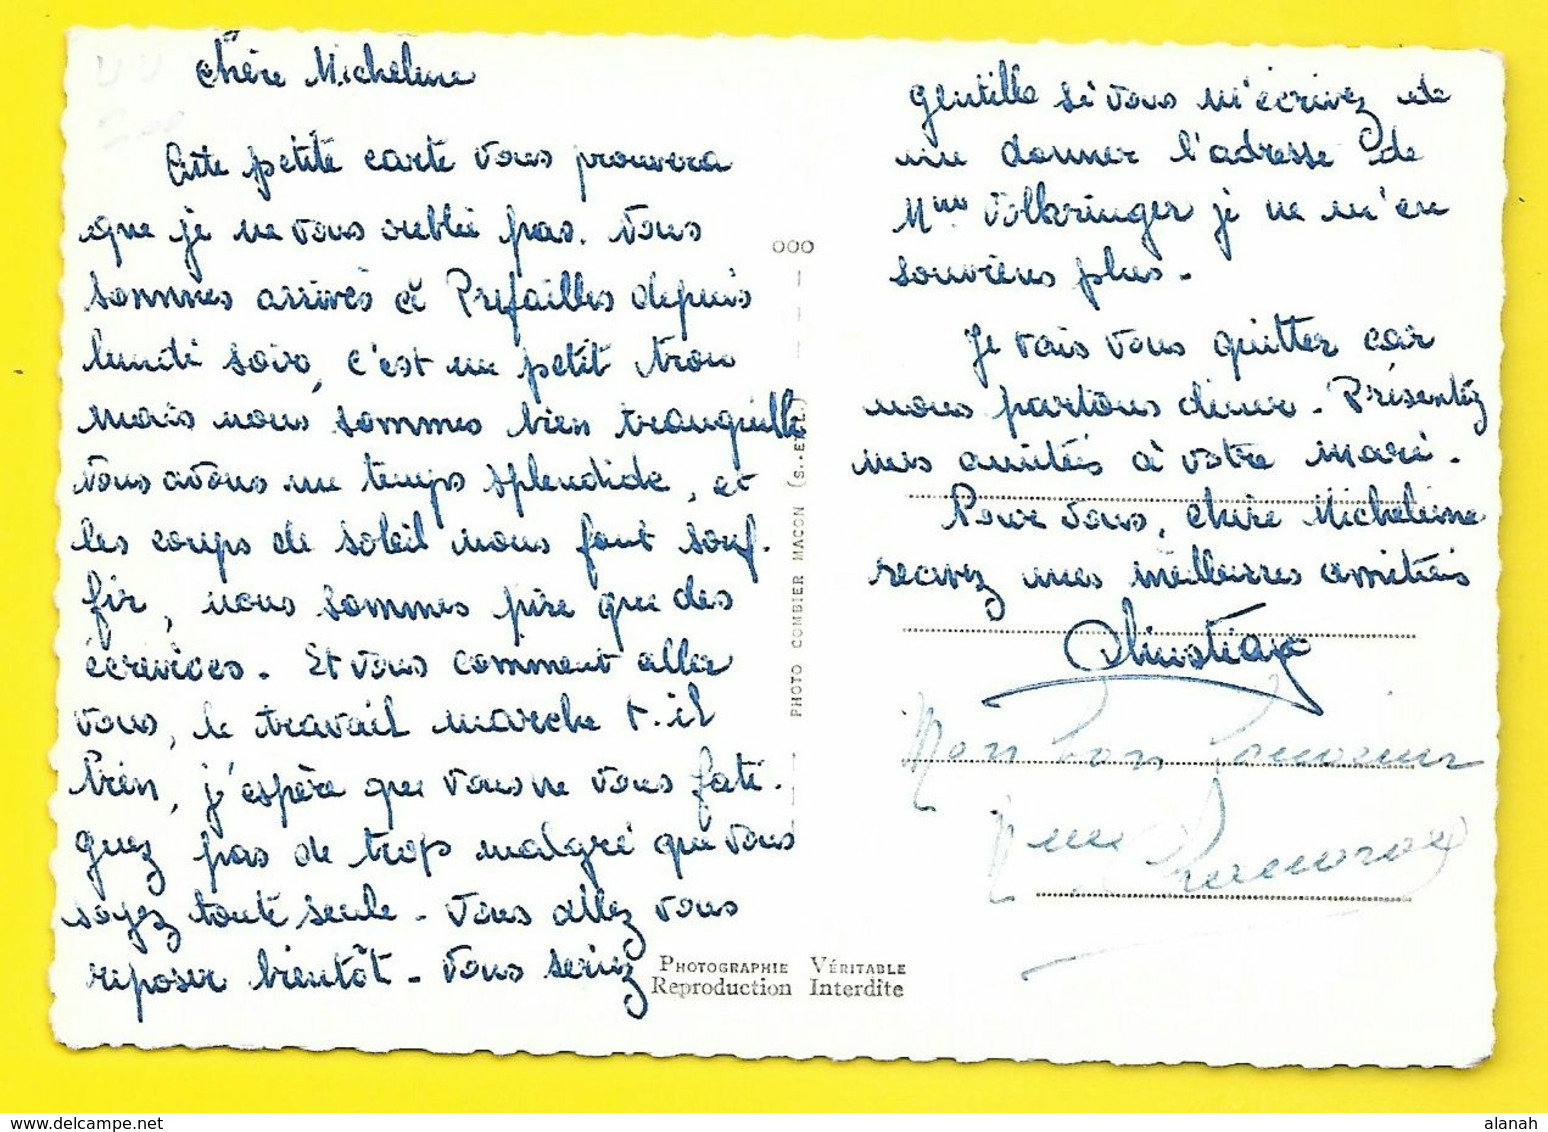 Chère Micheline
Cette petite carte vous prouvera
que je ne vous oublie pas. Vous
sommes arrivés à Préfailles depuis
lundi soir, c'est un petit trou
mais nous sommes bien tranquille
vous avons un temps splendide, et
les coups de soleil nous font souf-
frir, nous sommes pire que des
écrevices. Et vous comment aller
vous, le travail marche t-il
bien, j'espère que vous ne vous fati-
guez pas de trop malgré que vous
soyez toute seule - Vous allez vous
reposer bientôt - Vous seriez
gentille si vous m'écrivez de
me donner l'adresse de
Mme Volkringer je ne m'en
souviens plus -
Je vais vous quitter car
nous partons diner - Présentez
mes amitiés à votre mari.
Pour vous, chère Micheleine
recevez mes meilleures amitiés
Christiane
Mon bon souvenir
Mme
OOO
PHOTO COMBIER MACON (S.-ET-L.)
PHOTOGRAPHIE VÉRITABLE
Reproduction Interdite
alanah